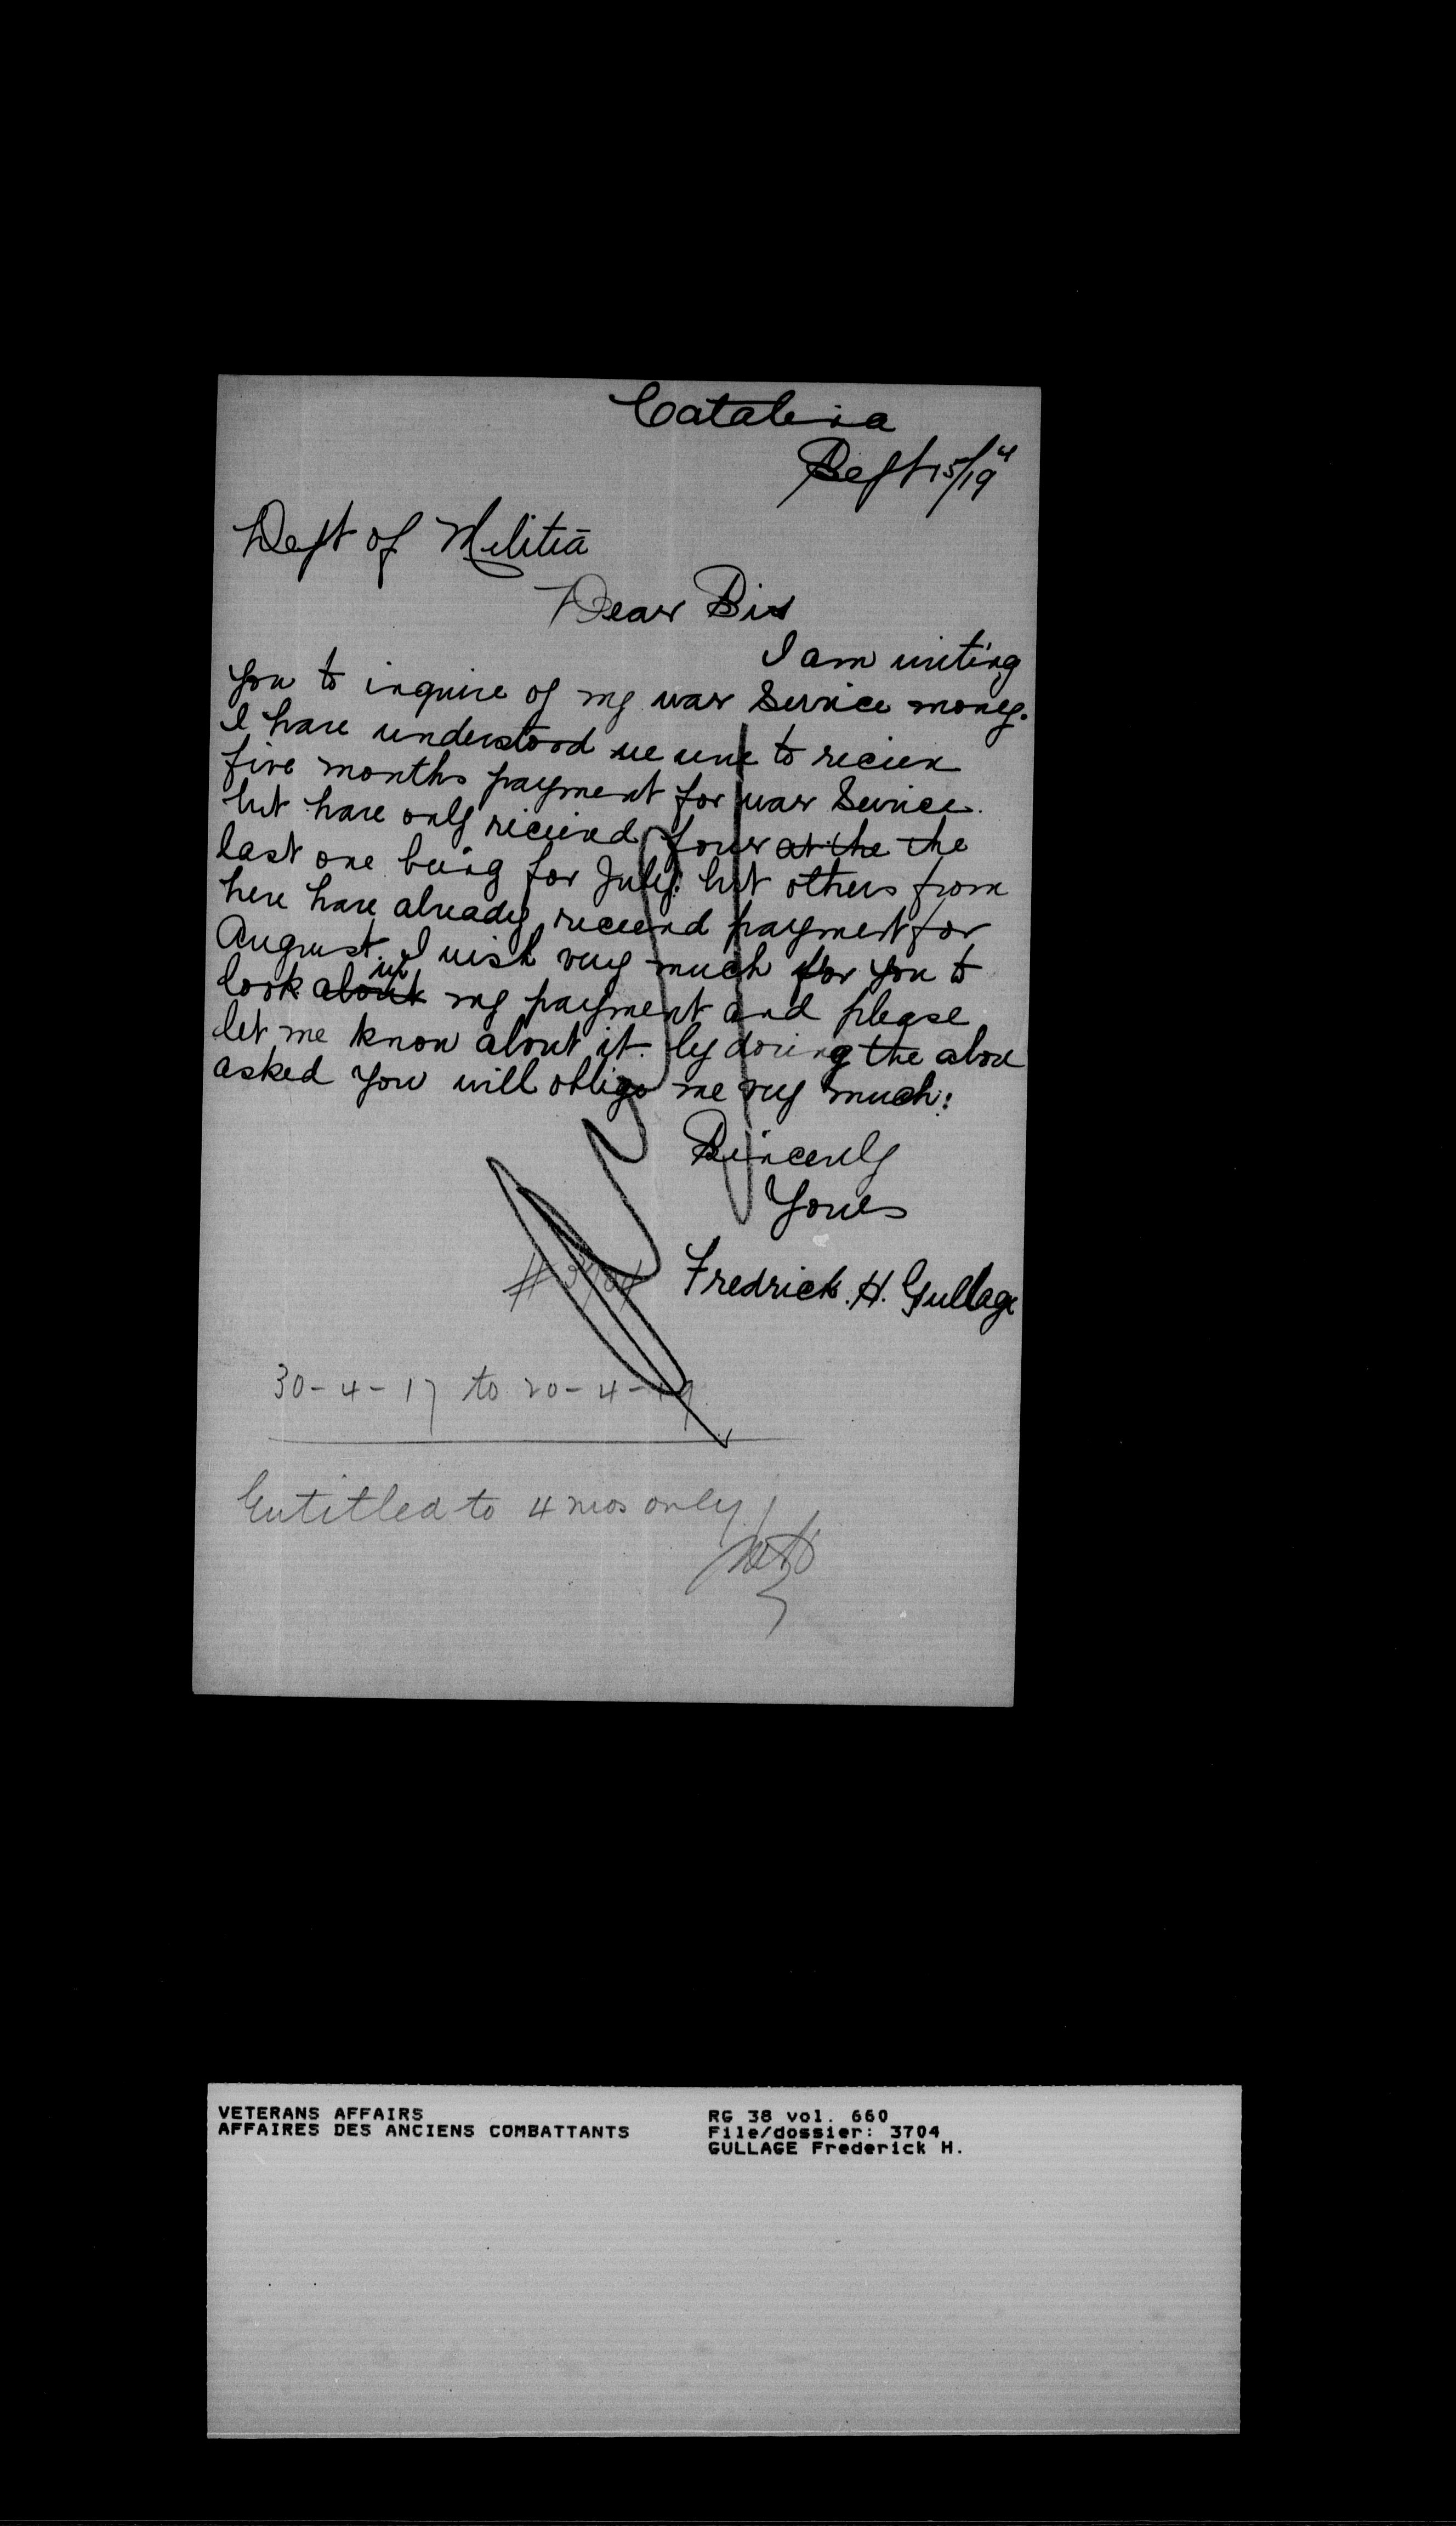 Catalina
Sept 15/19
Dept of Militia
Dear Sir
I am writing
you to inquire of my war Service money.
I have understood we were to recieve
five months payment for war Service.
but have only recieved four at the the
last one being for July: but others from
here have already recieved payment for
August. I wish very much for you to
look about up my payment and please
let me know about it. by doing the above
asked you will oblige me very much:
Sincerely
Yours
# 3704
Fredrick. H. Gullage
30-4-17 to 20-4-19
Entitled to 4 mos only
VETERANS AFFAIRS
AFFAIRES DES ANCIENS COMBATTANTS
RG 38 vol. 660
File/dossier: 3704
GULLAGE Frederick H.